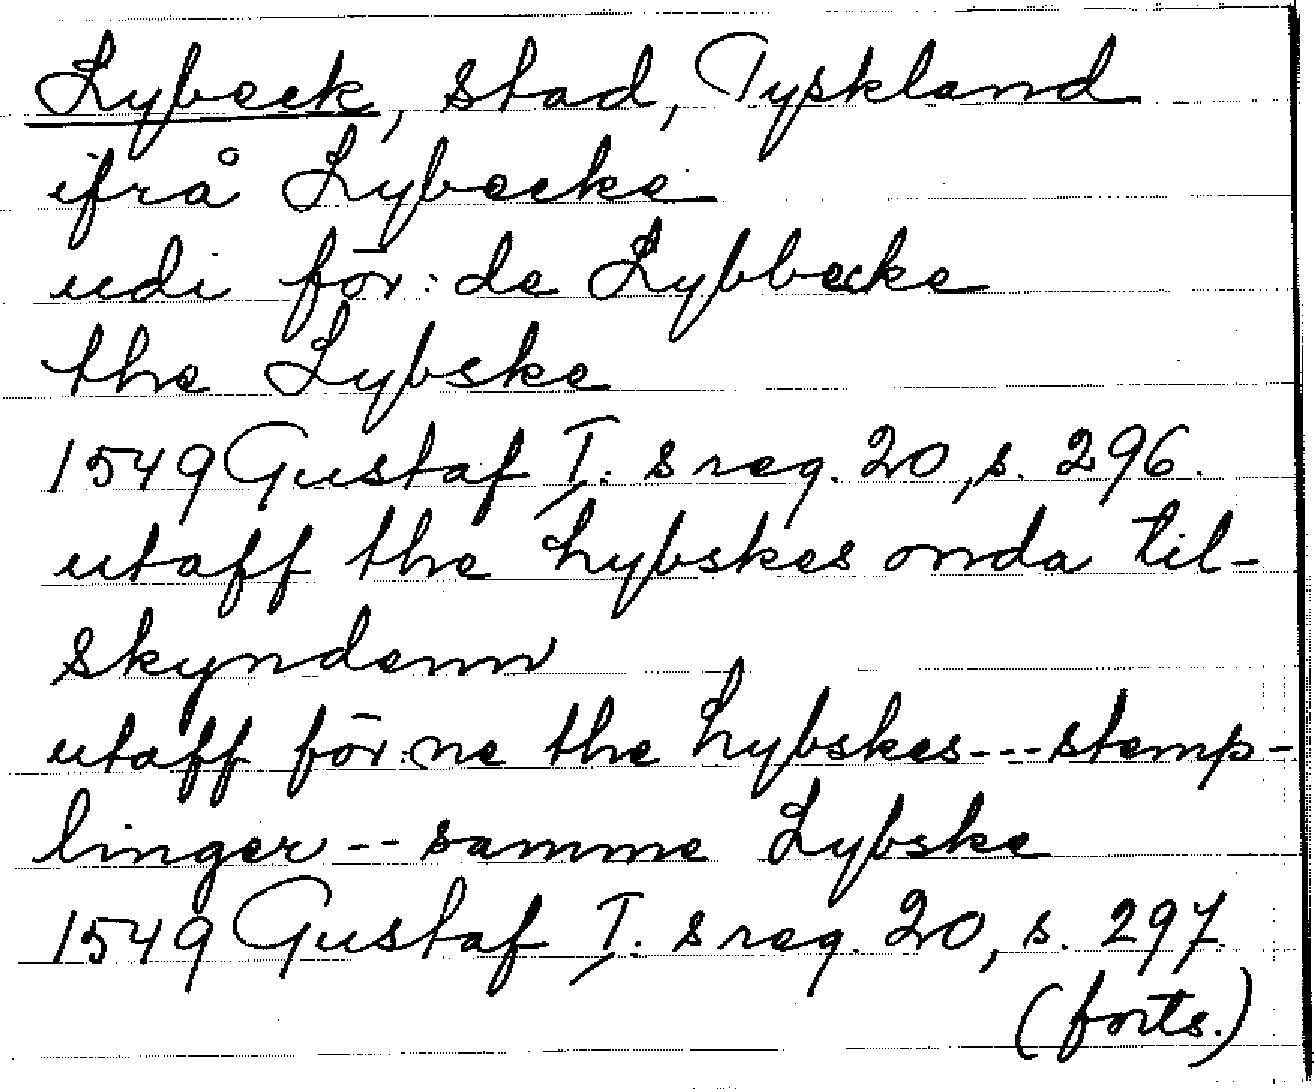 Lybeck, stad, Tyskland
ifrå Lybecke
udi för̄: de Lybbecke
the Lybske
1549 Gustaf I: s reg. 20, s. 296.
utaff the Lybskes onda til-
skyndenn
utaff för̄:ne the Lybskes---stemp-
linger -- samme Lybske
1549 Gustaf I: s reg. 20, s. 297
(forts.)